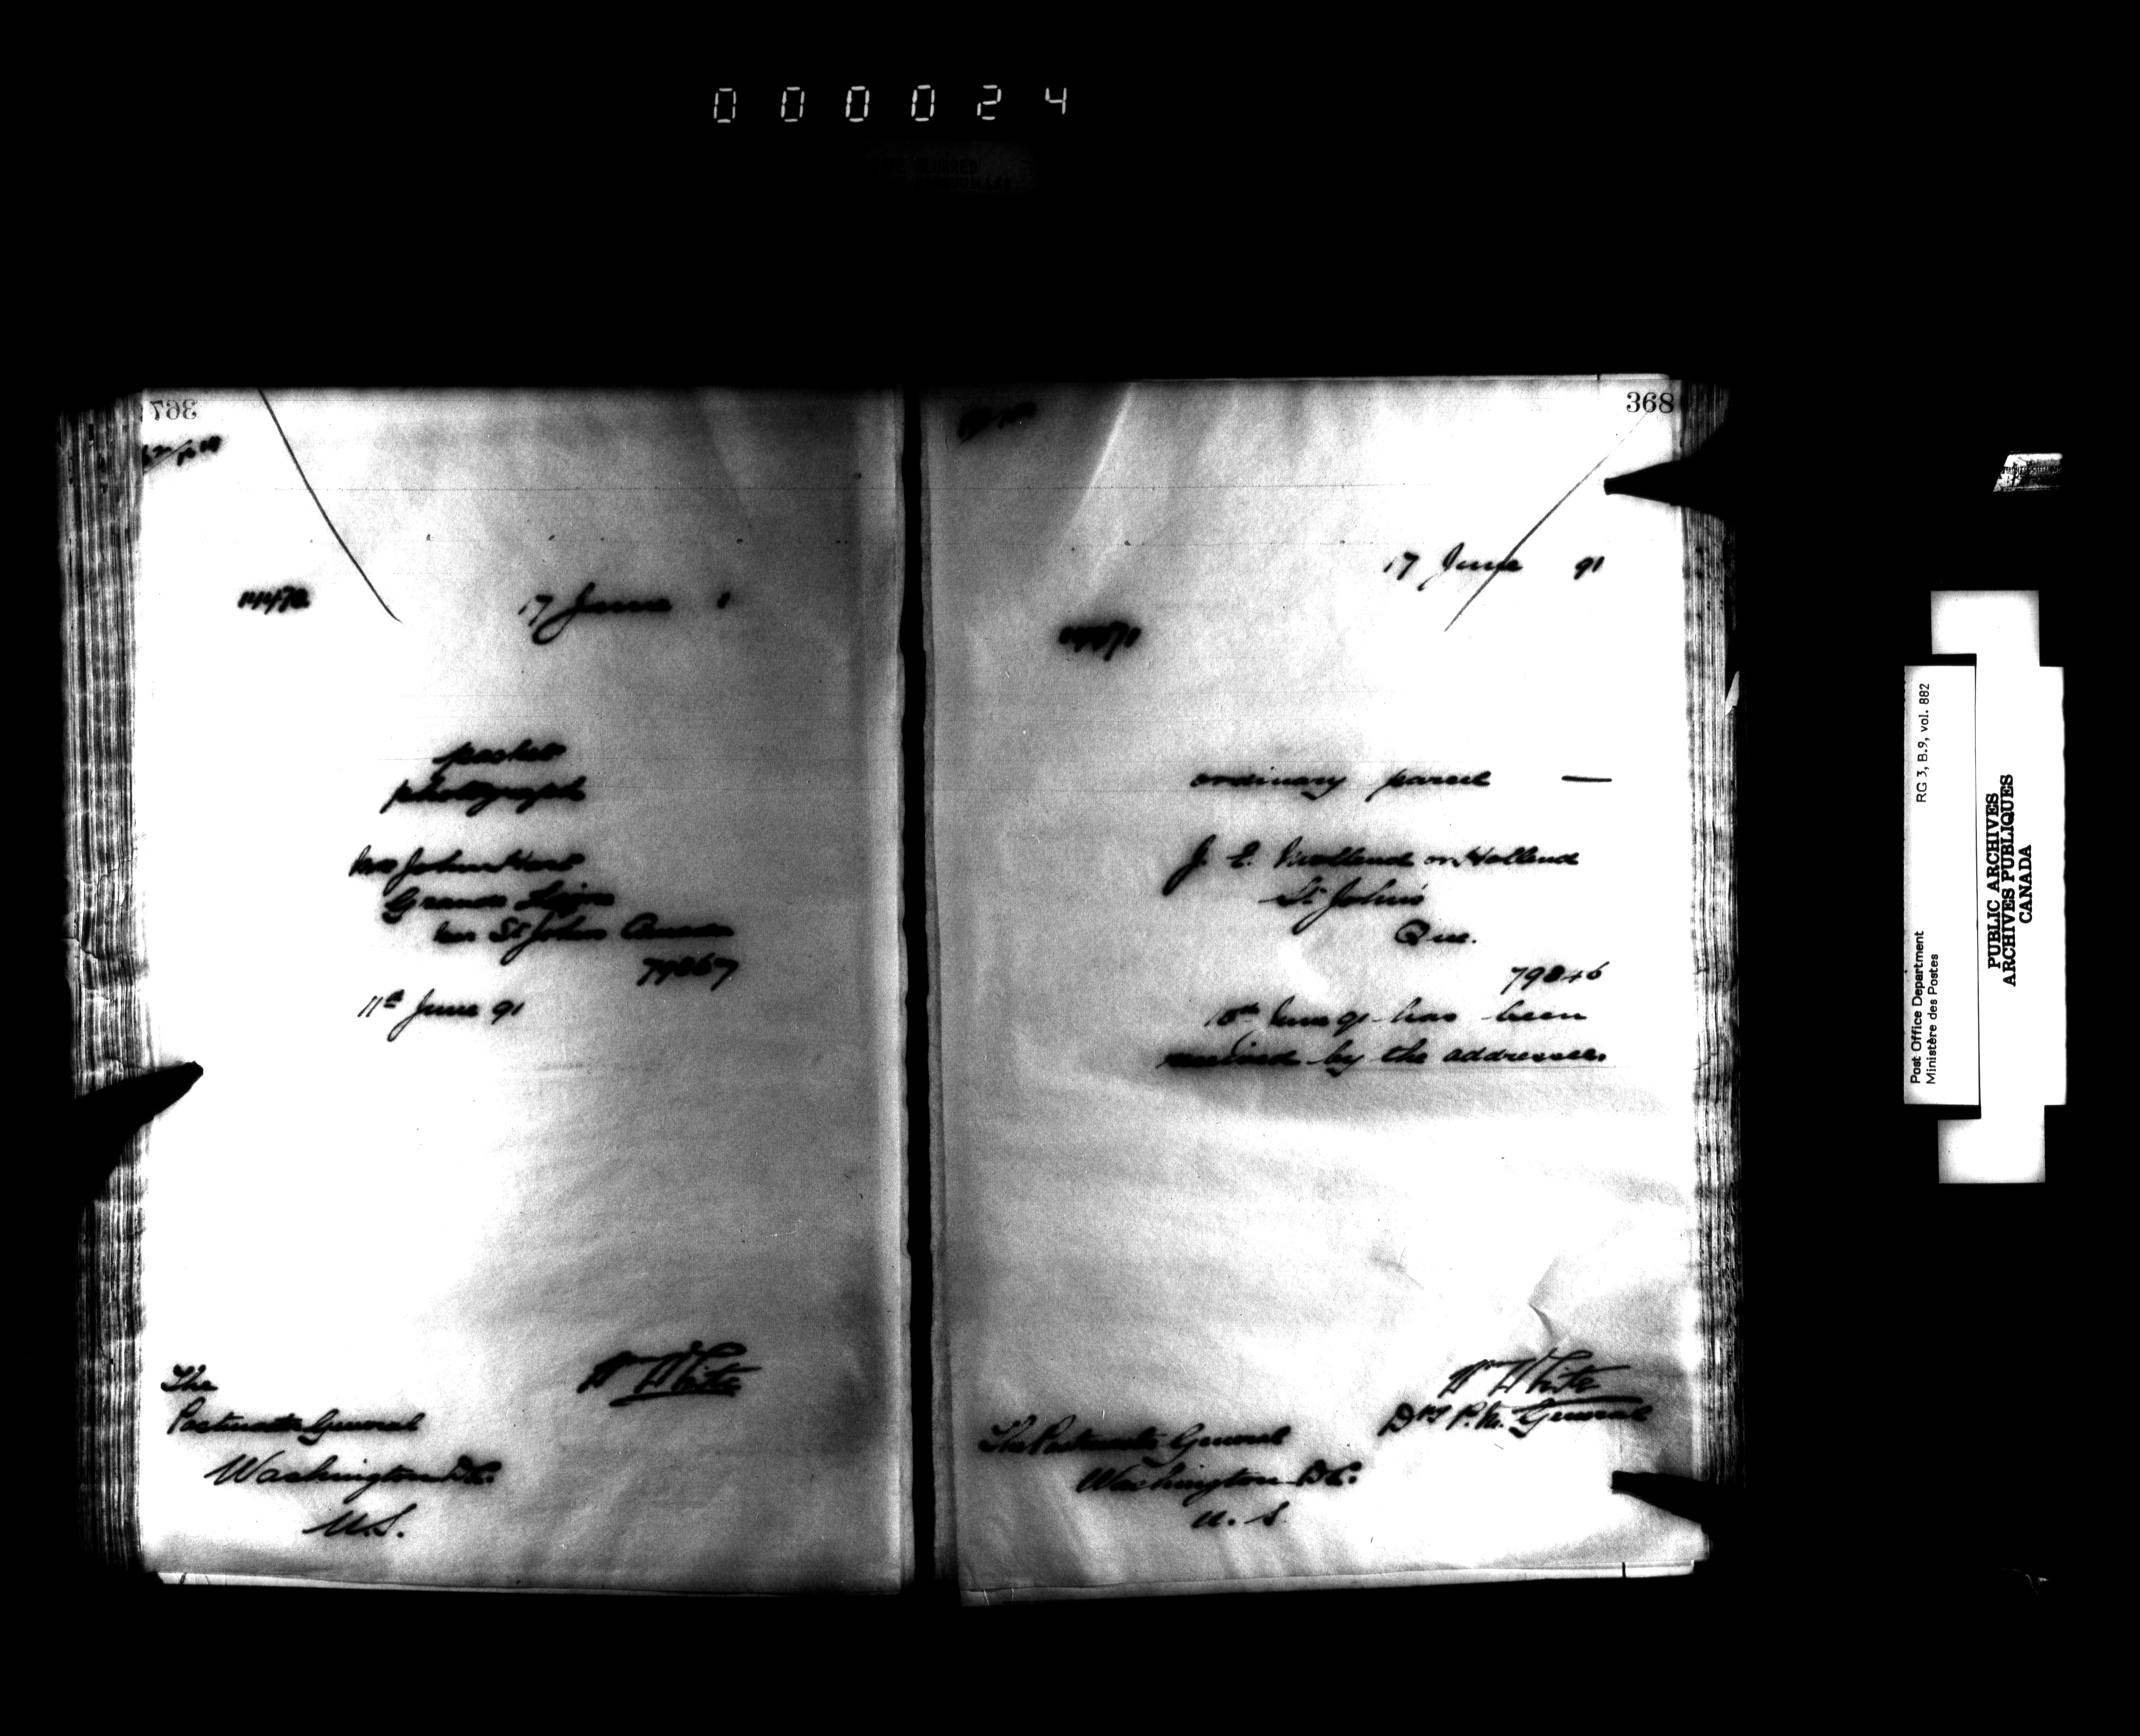 000024
367
17 June 1
packet
photograph
Mrs John
Grande Ligne
St Johns Canada
79867
11th June 91
Wm White
The
Postmaster General
Washington D.C.
U.S.
368
17 June 91
ordinary parcel —
J. E. Molland or Holland
St John's
Que.
79846
June 91 has been
received by the addressee.
Wm White
P.M. General
The Postmaster General
Washington D.C.
U. S.
Post Office Department
Ministère des Postes
RG 3, B.9, vol. 882
PUBLIC ARCHIVES
ARCHIVES PUBLIQUES
CANADA